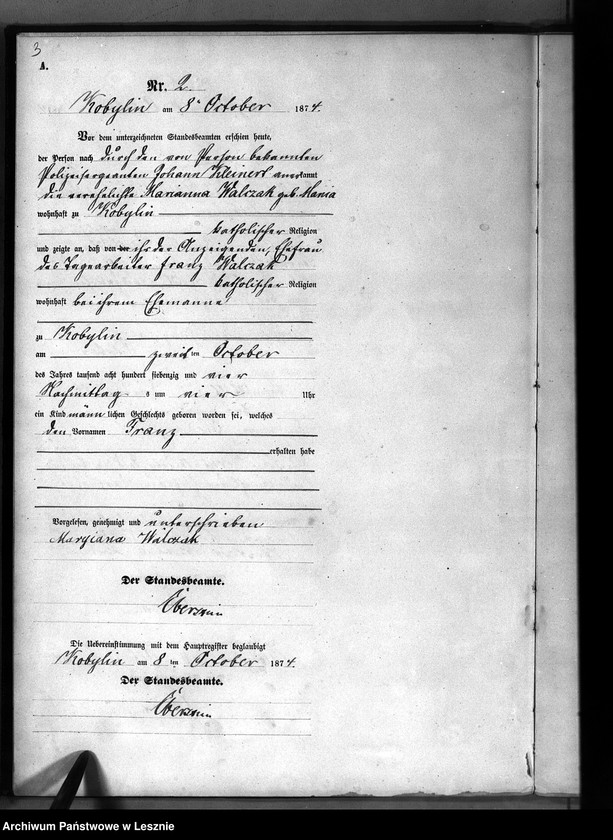 3
A.
Nr. 2.
Kobylin am 8 October 1874.
Vor dem unterzeichneten Standesbeamten erschien heute,
der Person nach durch den von Person bekannten
Polizeisergeanten Johann Kleinert anerkannt
die verehelichte Marianna Walczak geb. Mania
wohnhaft zu Kobylin
katholischer Religion
und zeigte an, daß von der ihr der Anzeigenden, Ehefrau
des Tagearbeiter Franz Walczak
katholischer Religion
wohnhaft bei ihrem Ehemanne
zu Kobylin
am zweiten October
des Jahres tausend acht hundert siebenzig und vier
Nachmittag s um vier Uhr
ein Kind männlichen Geschlechts geboren worden sei, welches
den Vornamen Franz
erhalten habe
Vorgelesen, genehmigt und unterschrieben
Maryiana Walczak
Der Standesbeamte.
Die Uebereinstimmung mit dem Hauptregister beglaubigt
Kobylin am 8 ten October 1874.
Der Standesbeamte.
Archiwum Państwowe w Lesznie